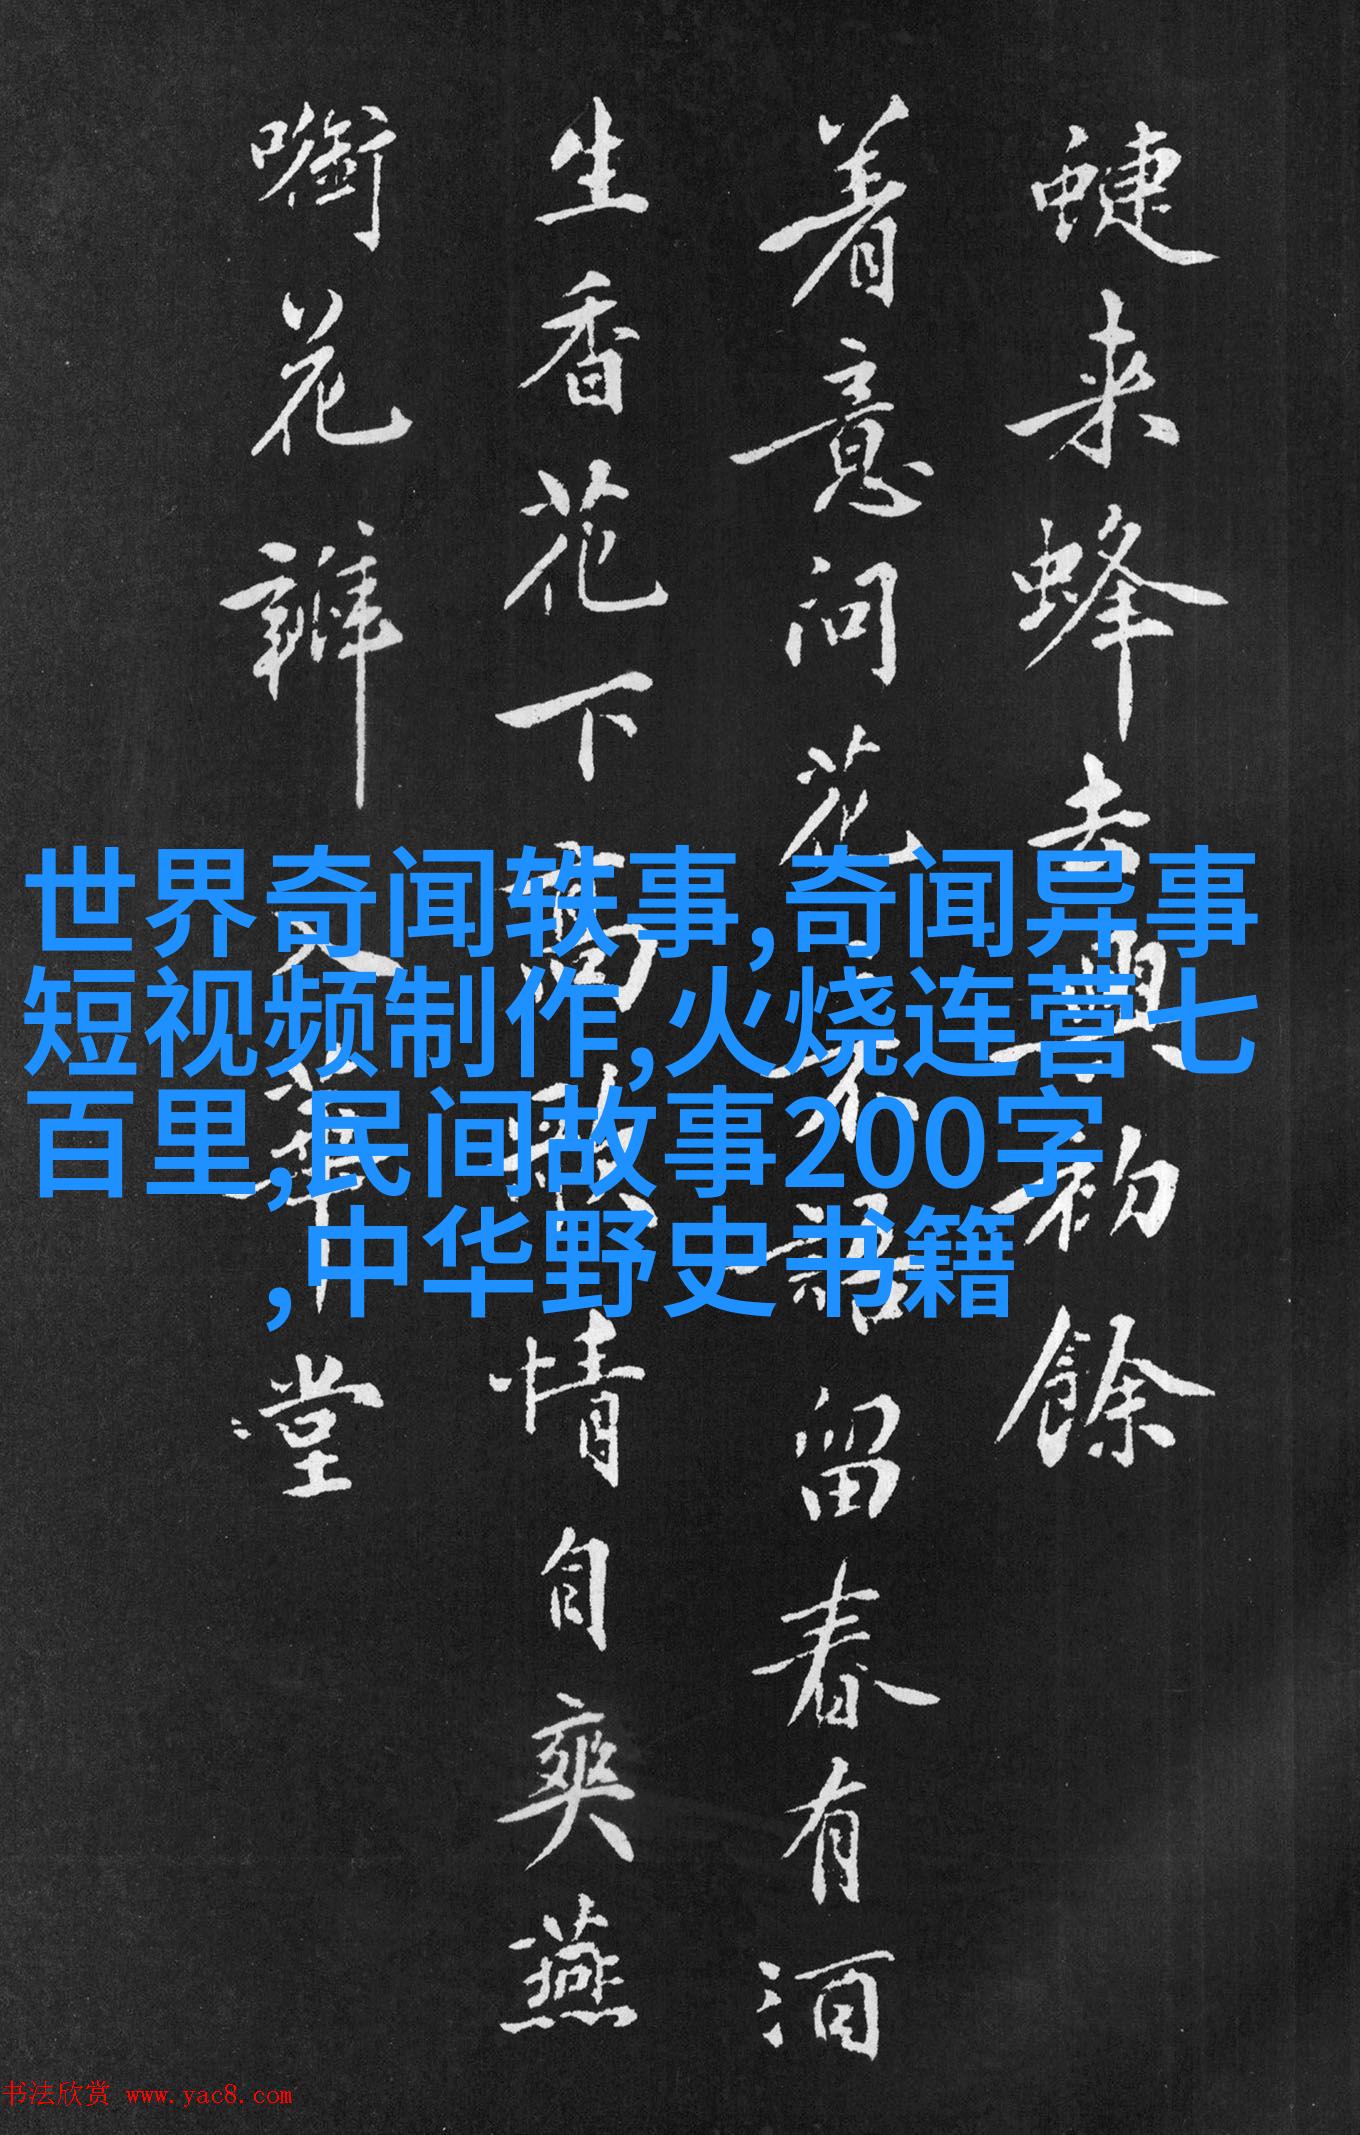 蜨来蜂去興初餘
着意问花々不語留春有酒
生香花下高歌情自爽燕
㘅花瓣入華堂
世界奇闻轶事,奇闻异事
短视频制作,火烧连营七
百里,民间故事200字
,中华野史书籍
书法欣赏 www.yac8.com